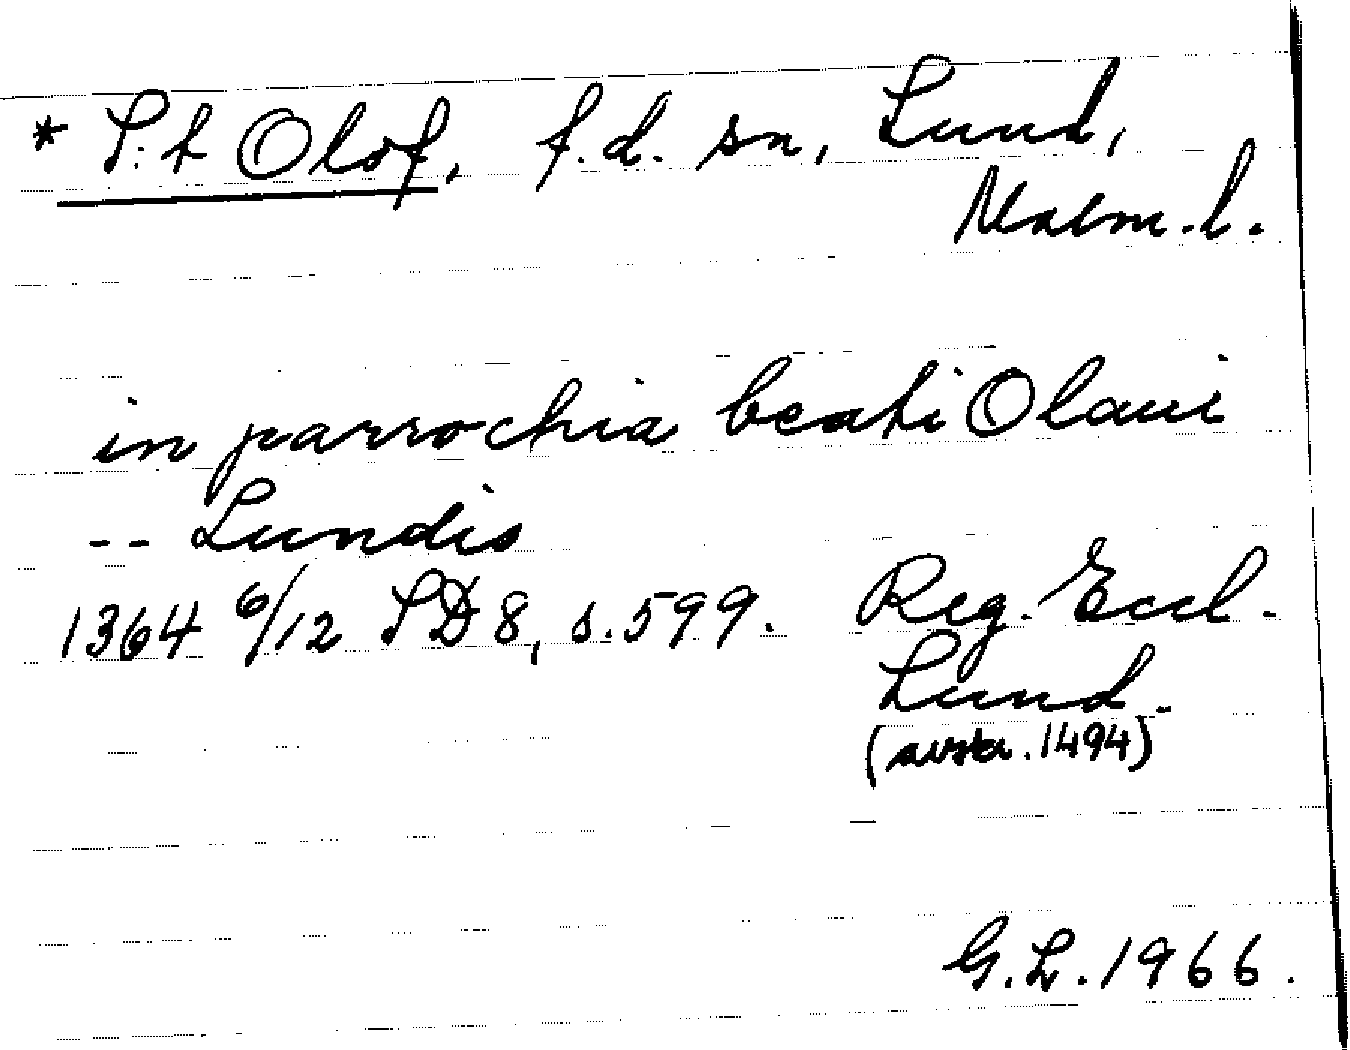 * S:t Olof, f.d. sn, Lund,
Malm.l.
in parrochia beati Olaui
-- Lundis
1364 6/12 SD 8, s. 599. Reg. Eccl.
Lund.
(avskr. 1494)
G.L. 1966.